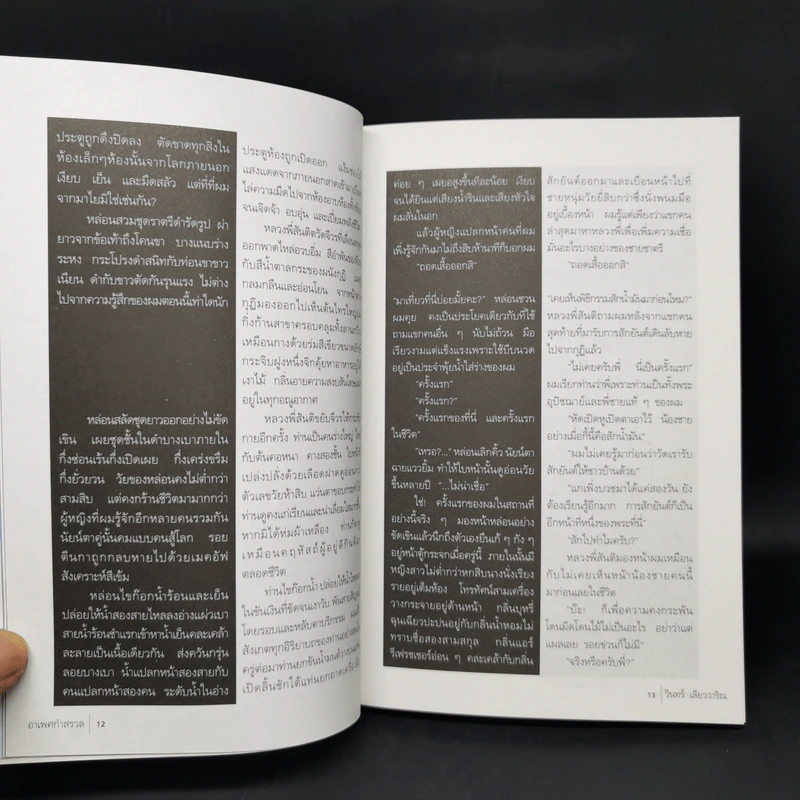 ประตูถูกดึงปิดลง ตัดขาดทุกสิ่งใน
ห้องเล็กๆห้องนั้นจากโลกภายนอก
เงียบ เย็น และมืดสลัว แต่ที่ที่ผม
จากมาไยมิใช่เช่นกัน?
หล่อนสวมชุดราตรีดำรัดรูป ผ่า
ยาวจากข้อเท้าถึงโคนขา บางแนบร่าง
ระหง กระโปรงดำสนิทกับท่อนขาขาว
เนียน ดำกับขาวตัดกันรุนแรง ไม่ต่าง
ไปจากความรู้สึกของผมตอนนี้เท่าใดนัก
หล่อนสลัดชุดยาวออกอย่างไม่ขัด
เขิน เผยชุดชั้นในดำบางเบาภายใน
กึ่งซ่อนเร้นกึ่งเปิดเผย กึ่งเคร่งขรึม
กึ่งยั่วยวน วัยของหล่อนคงไม่ต่ำกว่า
สามสิบ แต่คงกร้านชีวิตมามากกว่า
ผู้หญิงที่ผมรู้จักอีกหลายคนรวมกัน
นัยน์ตาคู่นั้นคมแบบคนสู้โลก รอย
ตีนกาถูกกลบหายไปด้วยเมคอัพ
สังเคราะห์สีเข้ม
หล่อนไขก๊อกน้ำร้อนและเย็น
ปล่อยให้น้ำสองสายไหลลงอ่างแผ่วเบา
สายน้ำร้อนชำแรกเข้าหาน้ำเย็นคละเคล้า
ละลายเป็นเนื้อเดียวกัน ส่งควันกรุ่น
ลอยบางเบา น้ำแปลกหน้าสองสายกับ
คนแปลกหน้าสองคน ระดับน้ำในอ่าง
ประตูห้องถูกเปิดออก
แสงแดดจากภายนอกสาดเข้ามา
ไล่ความมืดไปจากห้อง
จนเจิดจ้า อบอุ่น และเปี่ยมพลังชีวิต
หลวงพี่สันติตวัดจีวรที่เลื่อน
ออกพาดไหล่อวบอิ่ม
กับสีน้ำตาลกระของผนังกุฏิ
กลมกลืนและอ่อนโยน
กุฏิมองออกไปเห็นต้นไทรใหญ่
กิ่งก้านสาขาครอบคลุม
เหมือนกางด้วยร่มสีเขียวขนาดยักษ์
กระจิบฝูงหนึ่งจิกคุ้ยหาอาหารอยู่
เงาไม้ กลิ่นอายความสงบสันโดษ
อยู่ในทุกอณูอากาศ
หลวงพี่สันติขยับจีวรให้
กายอีกครั้ง ท่านเป็นคนร่างใหญ่
กับต้นคอหนา คางสองชั้น
เปล่งปลั่งด้วยเลือดฝาด
ตัวเลขวัยห้าสิบ
ท่านดูคงแก่เรียนและน่าเลื่อมใส
หากมิได้ห่มผ้าเหลือง
เหมือนคฤหัสถ์ผู้อยู่ดีกินดี
ตลอดชีวิต
ท่านไขก๊อกน้ำ ปล่อยให้น้ำ
ในขันเงินที่ขัดจนเงาวับ
โดยรอบและหลับตาบริกรรม
สังเกตทุกอิริยาบถของท่านอย่าง
ครู่ต่อมาท่านยกขันน้ำมนต์วาง
เปิดลิ้นชักใต้แท่นยกถาดเครื่อง
อาเพศกำสรวล | 12
ค่อย ๆ เผยอสูงขึ้นทีละน้อย เงียบ
จนได้ยินแต่เสียงน้ำรินและเสียงหัวใจ
ผมสั่นในอก
แล้วผู้หญิงแปลกหน้าคนที่ผม
เพิ่งรู้จักกันมาไม่ถึงสิบห้านาทีก็บอกผม
“ถอดเสื้อออกสิ”
“มาเที่ยวที่นี่บ่อยมั้ยคะ?” หล่อนชวน
ผมคุย คงเป็นประโยคเดียวกับที่ใช้
ถามแขกคนอื่น ๆ นับไม่ถ้วน มือ
เรียวงามแต่แข็งแรงเพราะใช้บีบนวด
อยู่เป็นประจำพุ้ยน้ำใส่ร่างของผม
“ครั้งแรก”
“ครั้งแรก?”
“ครั้งแรกของที่นี่ และครั้งแรก
ในชีวิต”
“เหรอ?...” หล่อนเลิกคิ้ว นัยน์ตา
ฉายแววยิ้ม ทำให้ใบหน้านั้นดูอ่อนวัย
ขึ้นหลายปี “...ไม่น่าเชื่อ”
ใช่! ครั้งแรกของผมในสถานที่
อย่างนี้จริง ๆ มองหน้าหล่อนอย่าง
ขัดเขินแล้วนึกถึงตัวเองยืนเก้ ๆ กัง ๆ
อยู่หน้าตู้กระจกเมื่อครู่นี้ ภายในนั้นมี
หญิงสาวไม่ต่ำกว่าหกสิบนางนั่งเรียง
รายอยู่เต็มห้อง โทรทัศน์สามเครื่อง
วางกระจายอยู่ด้านหน้า กลิ่นบุหรี่
ฉุนเฉียวปะปนอยู่กับกลิ่นน้ำหอมไม่
ทราบชื่อสองสามสกุล กลิ่นแอร์
รีเฟรชเชอร์อ่อน ๆ คละเคล้ากับกลิ่น
สักยันต์ออกมาและเบือนหน้าไปที่
ชายหนุ่มวัยยี่สิบกว่าซึ่งนั่งพนมมือ
อยู่เบื้องหน้า ผมรู้แต่เพียงว่าแขกคน
ล่าสุดมาหาหลวงพี่เพื่อเพิ่มความเชื่อ
มั่นอะไรบางอย่างของชายชาตรี
“ถอดเสื้อออกสิ”
“เคยเห็นพิธีกรรมสักน้ำมันมาก่อนไหม?”
หลวงพี่สันติถามผมหลังจากแขกคน
สุดท้ายที่มารับการสักยันต์เดินลับหาย
ไปจากกุฏิแล้ว
“ไม่เคยครับพี่ นี่เป็นครั้งแรก”
ผมเรียกท่านว่าพี่เพราะท่านเป็นทั้งพระ
อุปัชฌาย์และพี่ชายแท้ ๆ ของผม
“หัดเปิดหูเปิดตาเอาไว้ น้องชาย
อย่างเมื่อกี้นี้คือสักน้ำมัน”
“ผมไม่เคยรู้มาก่อนว่าวัดเรารับ
สักยันต์ให้ชาวบ้านด้วย”
“แกเพิ่งบวชมาได้แค่สองวัน ยัง
ต้องเรียนรู้อีกมาก การสักยันต์ก็เป็น
อีกหน้าที่หนึ่งของพระที่นี่”
“สักไปทำไมครับ?”
หลวงพี่สันติมองหน้าผมเหมือน
กับไม่เคยเห็นหน้าน้องชายคนนี้
มาก่อนเลยในชีวิต
“บ๊ะ! ก็เพื่อความคงกระพัน
โดนมีดโดนไม้ไม่เป็นอะไร อย่าว่าแต่
แผลเลย รอยช่วนก็ไม่มี”
“จริงหรือครับพี่?”
13 | วินทร์ เลียววาริณ